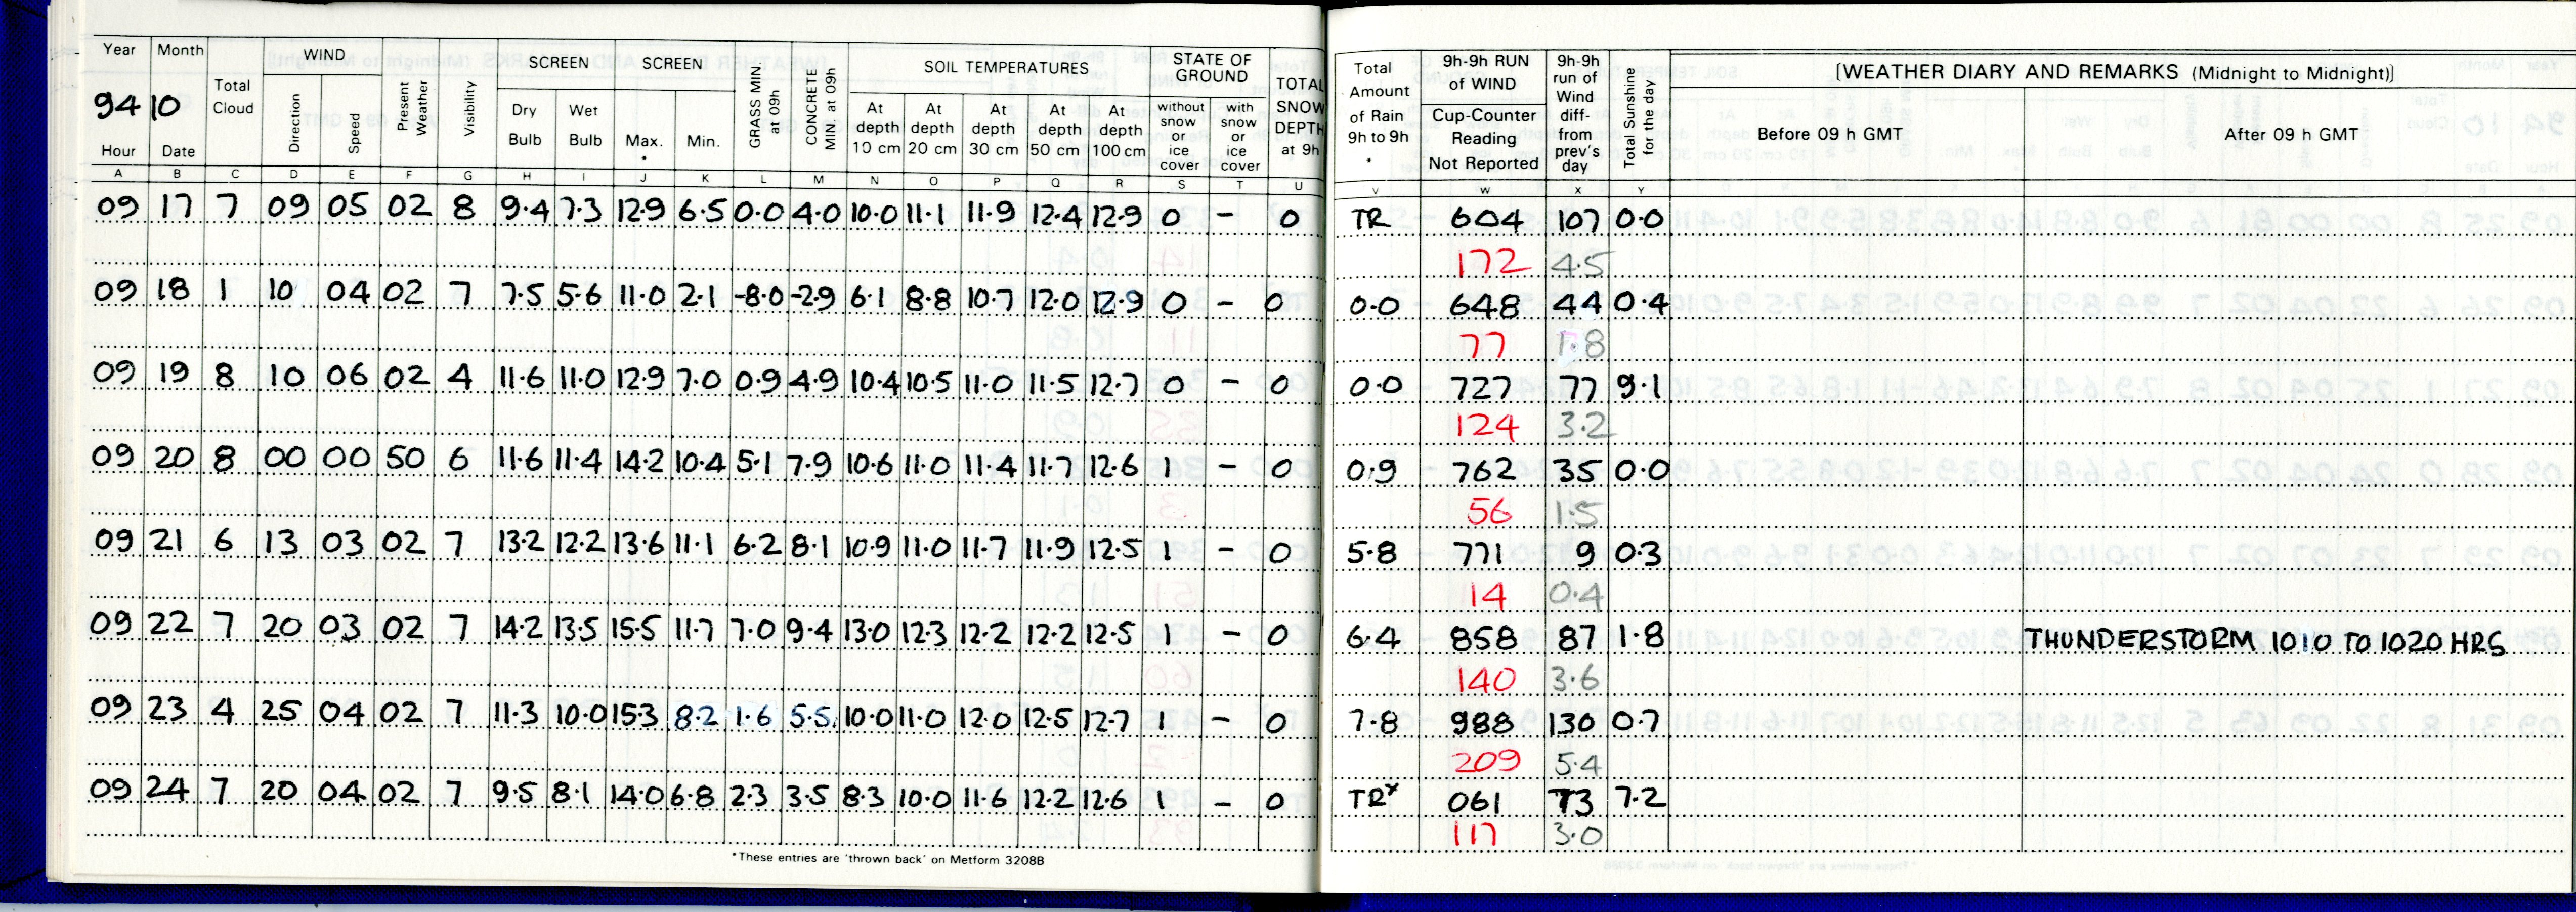 Year Month WIND SCREEN SCREEN SOIL TEMPERATURES STATE OF GROUND
94 10 Total Cloud Direction Speed Present Weather Visibility Dry Bulb Wet Bulb Max. * Min. GRASS MIN. at 09h CONCRETE MIN at 09h At depth 10 cm At depth 20 cm At depth 30 cm At depth 50 cm At depth 100 cm without snow or ice cover with snow or ice cover TOTAL SNOW DEPTH at 9h
Hour Date
Total Amount of Rain 9h to 9h * 9h-9h RUN of WIND Cup-Counter Reading Not Reported 9h-9h run of Wind diff- from prev's day Total Sunshine for the day [WEATHER DIARY AND REMARKS (Midnight to Midnight)]
Before 09 h GMT After 09 h GMT
A B C D E F G H I J K L M N O P Q R S T U V W X Y
09 17 7 09 05 02 8 9.4 7.3 12.9 6.5 0.0 4.0 10.0 11.1 11.9 12.4 12.9 0 - 0 TR 604 107 0.0
172 4.5
09 18 1 10 04 02 7 7.5 5.6 11.0 2.1 -8.0 -2.9 6.1 8.8 10.7 12.0 12.9 0 - 0 0.0 648 44 0.4
77 1.8
09 19 8 10 06 02 4 11.6 11.0 12.9 7.0 0.9 4.9 10.4 10.5 11.0 11.5 12.7 0 - 0 0.0 727 77 9.1
124 3.2
09 20 8 00 00 50 6 11.6 11.4 14.2 10.4 5.1 7.9 10.6 11.0 11.4 11.7 12.6 1 - 0 0.9 762 35 0.0
56 1.5
09 21 6 13 03 02 7 13.2 12.2 13.6 11.1 6.2 8.1 10.9 11.0 11.7 11.9 12.5 1 - 0 5.8 771 9 0.3
14 0.4
09 22 7 20 03 02 7 14.2 13.5 15.5 11.7 7.0 9.4 13.0 12.3 12.2 12.2 12.5 1 - 0 6.4 858 87 1.8 THUNDERSTORM 1010 TO 1020 HRS
140 3.6
09 23 4 25 04 02 7 11.3 10.0 15.3 8.2 1.6 5.5 10.0 11.0 12.0 12.5 12.7 1 - 0 7.8 988 130 0.7
209 5.4
09 24 7 20 04 02 7 9.5 8.1 14.0 6.8 2.3 3.5 8.3 10.0 11.6 12.2 12.6 1 - 0 TR* 061 73 7.2
117 3.0
*These entries are 'thrown back' on Metform 3208B